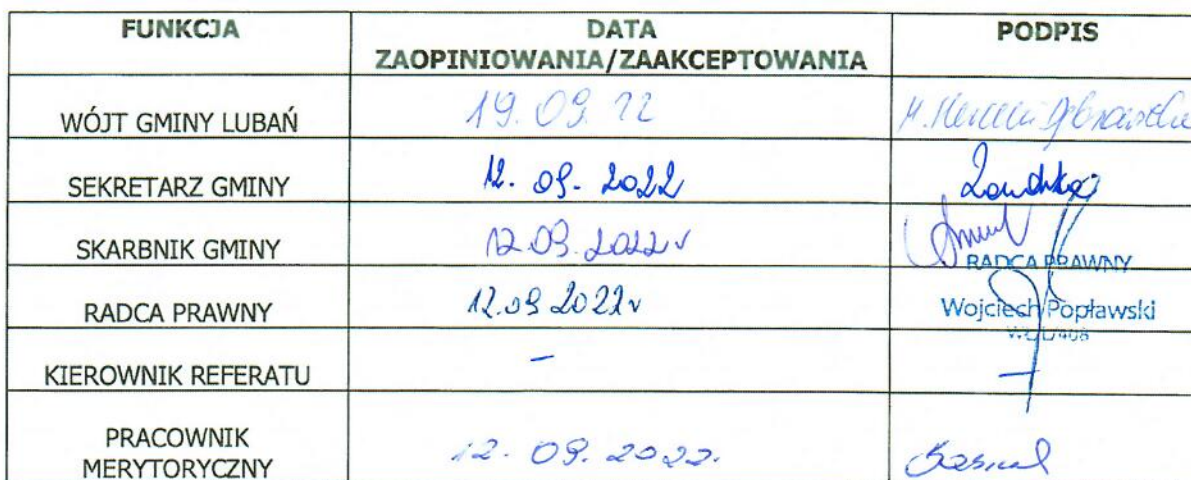 FUNKCJA DATA PODPIS
ZAOPINIOWANIA/ZAAKCEPTOWANIA
WÓJT GMINY LUBAŃ 19.09.22
SEKRETARZ GMINY 12.09.2022
SKARBNIK GMINY 12.09.2022r
RADCA PRAWNY
RADCA PRAWNY 12.09 2022r Wojciech Popławski
KIEROWNIK REFERATU – –
PRACOWNIK
MERYTORYCZNY 12.09.2022.